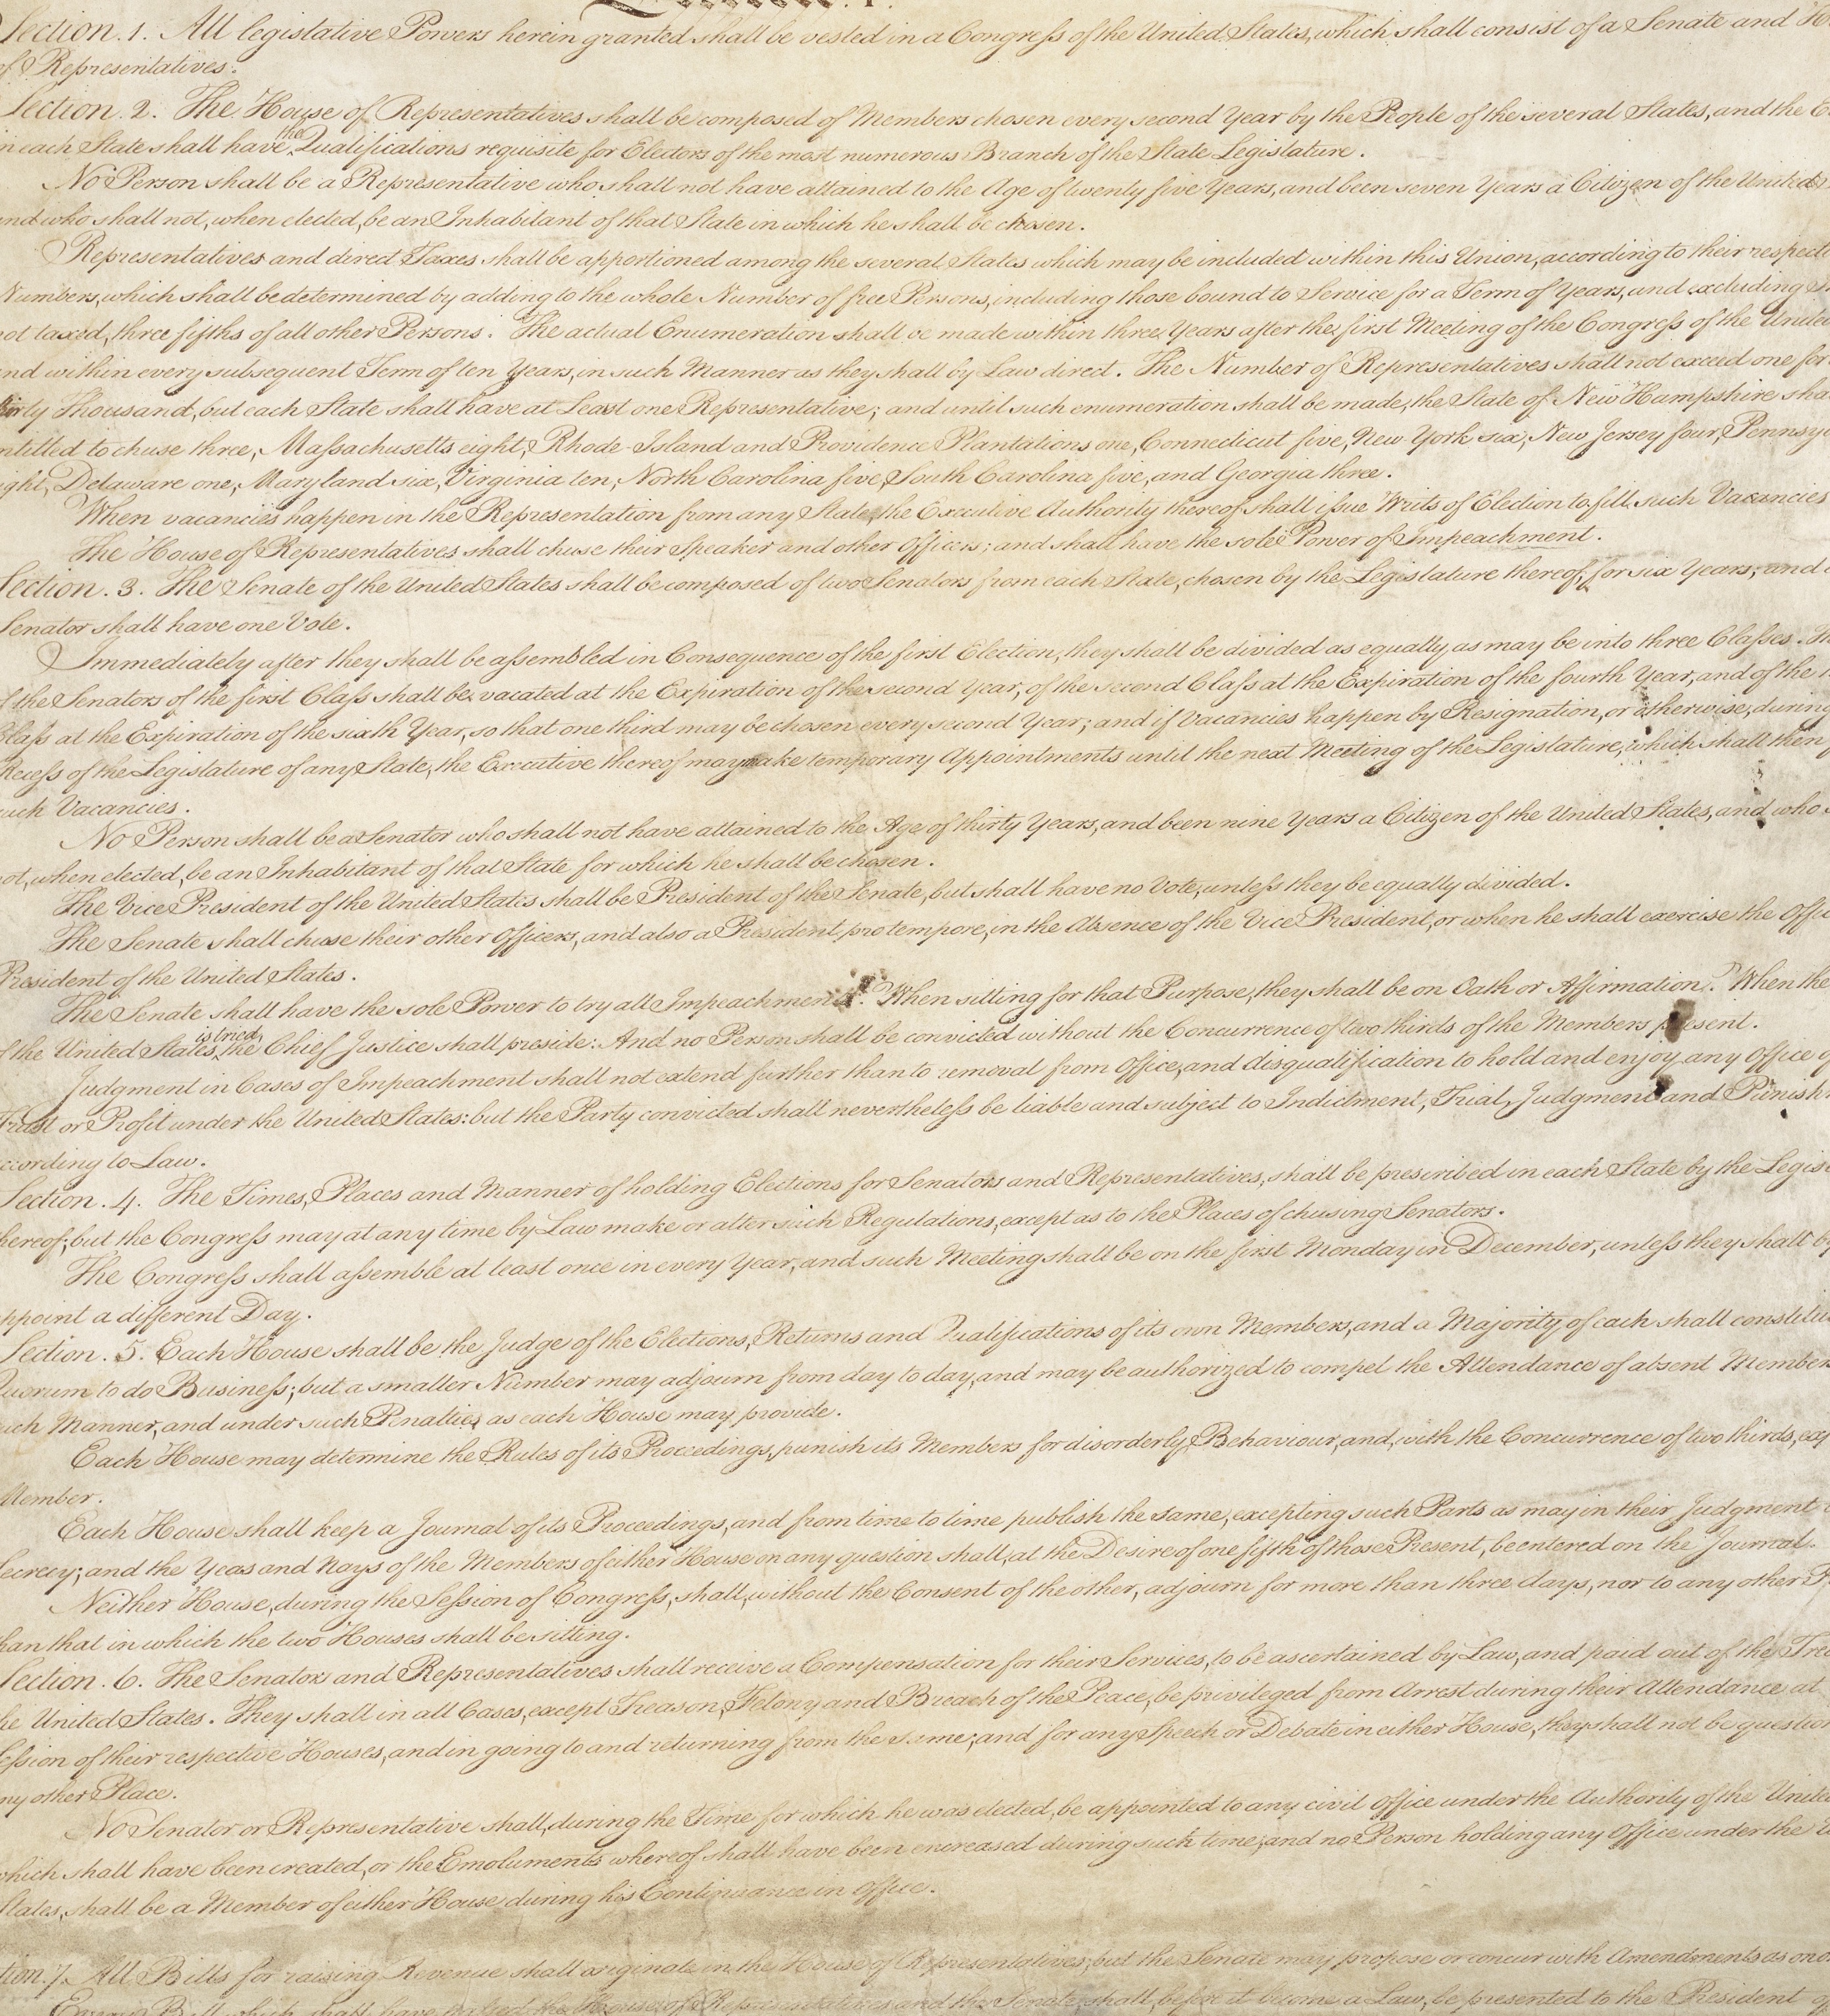 Section. 1. All legislative Powers herein granted shall be vested in a Congress of the United States, which shall consist of a Senate and
of Representatives.
Section. 2. The House of Representatives shall be composed of Members chosen every second Year by the People of the several States, and the
in each State shall have the Qualifications requisite for Electors of the most numerous Branch of the State Legislature.
No Person shall be a Representative who shall not have attained to the Age of twenty five Years, and been seven Years a Citizen of the United
and who shall not, when elected, be an Inhabitant of that State in which he shall be chosen.
Representatives and direct Taxes shall be apportioned among the several States which may be included within this Union, according to their respecti
Numbers, which shall be determined by adding to the whole Number of free Persons, including those bound to Service for a Term of Years, and excluding
not taxed, three fifths of all other Persons. The actual Enumeration shall be made within three Years after the first Meeting of the Congress of the United
and within every subsequent Term of ten Years, in such Manner as they shall by Law direct. The Number of Representatives shall not exceed one for
thirty Thousand, but each State shall have at Least one Representative; and until such enumeration shall be made, the State of New Hampshire sha
ntitled to chuse three, Massachusetts eight, Rhode-Island and Providence Plantations one, Connecticut five, New-York six, New Jersey four, Pennsyl
ight, Delaware one, Maryland six, Virginia ten, North Carolina five, South Carolina five, and Georgia three.
When vacancies happen in the Representation from any State, the Executive Authority thereof shall issue Writs of Election to fill such Vacancies
The House of Representatives shall chuse their Speaker and other Officers; and shall have the sole Power of Impeachment.
Section. 3. The Senate of the United States shall be composed of two Senators from each State, chosen by the Legislature thereof, for six Years; and
Senator shall have one Vote.
Immediately after they shall be assembled in Consequence of the first Election, they shall be divided as equally as may be into three Classes. The
of the Senators of the first Class shall be vacated at the Expiration of the second Year, of the second Class at the Expiration of the fourth Year, and of the
Class at the Expiration of the sixth Year, so that one third may be chosen every second Year; and if Vacancies happen by Resignation, or otherwise, during
Recess of the Legislature of any State, the Executive thereof may make temporary Appointments until the next Meeting of the Legislature, which shall then
such Vacancies.
No Person shall be a Senator who shall not have attained to the Age of thirty Years, and been nine Years a Citizen of the United States, and who
not, when elected, be an Inhabitant of that State for which he shall be chosen.
The Vice President of the United States shall be President of the Senate, but shall have no Vote, unless they be equally divided.
The Senate shall chuse their other Officers, and also a President pro tempore, in the Absence of the Vice President, or when he shall exercise the Offic
President of the United States.
The Senate shall have the sole Power to try all Impeachments. When sitting for that Purpose, they shall be on Oath or Affirmation. When the
of the United States is tried, the Chief Justice shall preside: And no Person shall be convicted without the Concurrence of two thirds of the Members present.
Judgment in Cases of Impeachment shall not extend further than to removal from Office, and disqualification to hold and enjoy any Office of
Trust or Profit under the United States: but the Party convicted shall nevertheless be liable and subject to Indictment, Trial, Judgment and Punish
ccording to Law.
Section. 4. The Times, Places and Manner of holding Elections for Senators and Representatives, shall be prescribed in each State by the Legisl
hereof; but the Congress may at any time by Law make or alter such Regulations, except as to the Places of chusing Senators.
The Congress shall assemble at least once in every Year, and such Meeting shall be on the first Monday in December, unless they shall by
ppoint a different Day.
Section. 5. Each House shall be the Judge of the Elections, Returns and Qualifications of its own Members, and a Majority of each shall constitu
Quorum to do Business; but a smaller Number may adjourn from day to day, and may be authorized to compel the Attendance of absent Members
uch Manner, and under such Penalties as each House may provide.
Each House may determine the Rules of its Proceedings, punish its Members for disorderly Behaviour, and, with the Concurrence of two thirds, exp
Member.
Each House shall keep a Journal of its Proceedings, and from time to time publish the same, excepting such Parts as may in their Judgment
Secrecy; and the Yeas and Nays of the Members of either House on any question shall, at the Desire of one fifth of those Present, be entered on the Journal.
Neither House, during the Session of Congress, shall, without the Consent of the other, adjourn for more than three days, nor to any other
han that in which the two Houses shall be sitting.
Section. 6. The Senators and Representatives shall receive a Compensation for their Services, to be ascertained by Law, and paid out of the Trea
he United States. They shall in all Cases, except Treason, Felony and Breach of the Peace, be privileged from Arrest during their Attendance at
ession of their respective Houses, and in going to and returning from the same; and for any Speech or Debate in either House, they shall not be question
ny other Place.
No Senator or Representative shall, during the Time for which he was elected, be appointed to any civil Office under the Authority of the United
which shall have been created, or the Emoluments whereof shall have been encreased during such time; and no Person holding any Office under the
States, shall be a Member of either House during his Continuance in Office.
tion. 7. All Bills for raising Revenue shall originate in the House of Representatives; but the Senate may propose or concur with Amendments as on
Every Bill which shall have passed the House of Representatives and the Senate, shall, before it become a Law, be presented to the President of